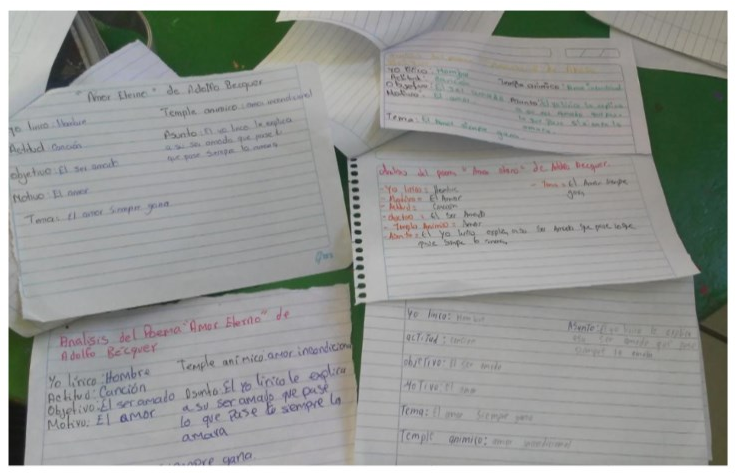 "Amor Eterno" de Adolfo Becquer
Yo lírico: Hombre
Temple animico: amor incondicional
Actitud: Canción
Asunto: El yo lírico le explica
a su ser amado que pase lo
que pase siempre la amara
Objetivo: El ser amado
Motivo: El amor
Tema: El amor siempre gana
Yo lírico: Hombre
Actitud: Canción
Objetivo: El ser amado
Motivo: El amor
Temple animico: Amor incondicional
Asunto: El yo lírico le explica
Tema: El Amor siempre gana
de "Amor eterno" de Adolfo Becquer.
- Yo lírico = Hombre
- Motivo = El Amor
- Actitud = Canción
- Objetivo = El ser Amado
- Temple Animico = Amor
- Asunto = El Yo lírico explica a su ser Amado que pase lo que
pase siempre la amara
- Tema = El Amor siempre
gana
Analisis del Poema "Amor Eterno" de
Adolfo Becquer
Yo lírico: Hombre
Temple anímico: amor incondicional
Actitud: Canción
Objetivo: El ser amado
Motivo: El amor
Asunto: El Yo lírico le explica
a su ser amado que pase
lo que Pase el siempre la
amara
siempre gana.
Yo lírico: Hombre
Actitud: Canción
objetivo: El ser amado
Motivo: El amor
Tema: El amor siempre gana
Temple animico: amor incondicional
Asunto: El yo lírico le explica
a su ser amado que pase
siempre la amara